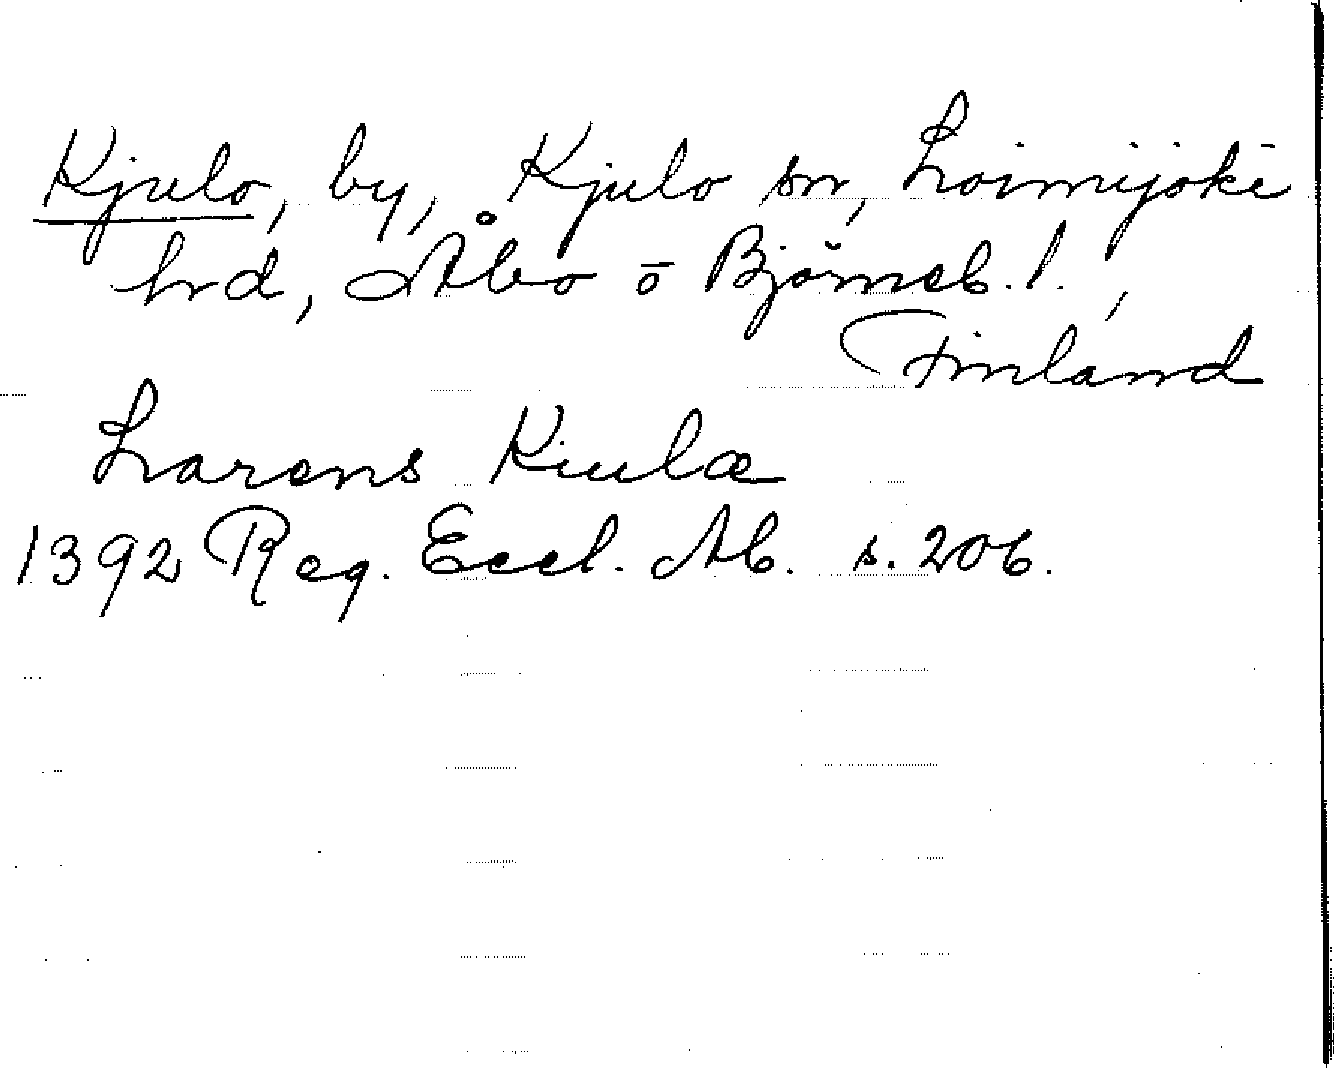 Kjulo, by, Kjulo sn, Loimijoki
hrd, Åbo o Björneb. l.,
Finland
Larens Kiulæ
1392 Reg. Eccl. Ab. s. 206.